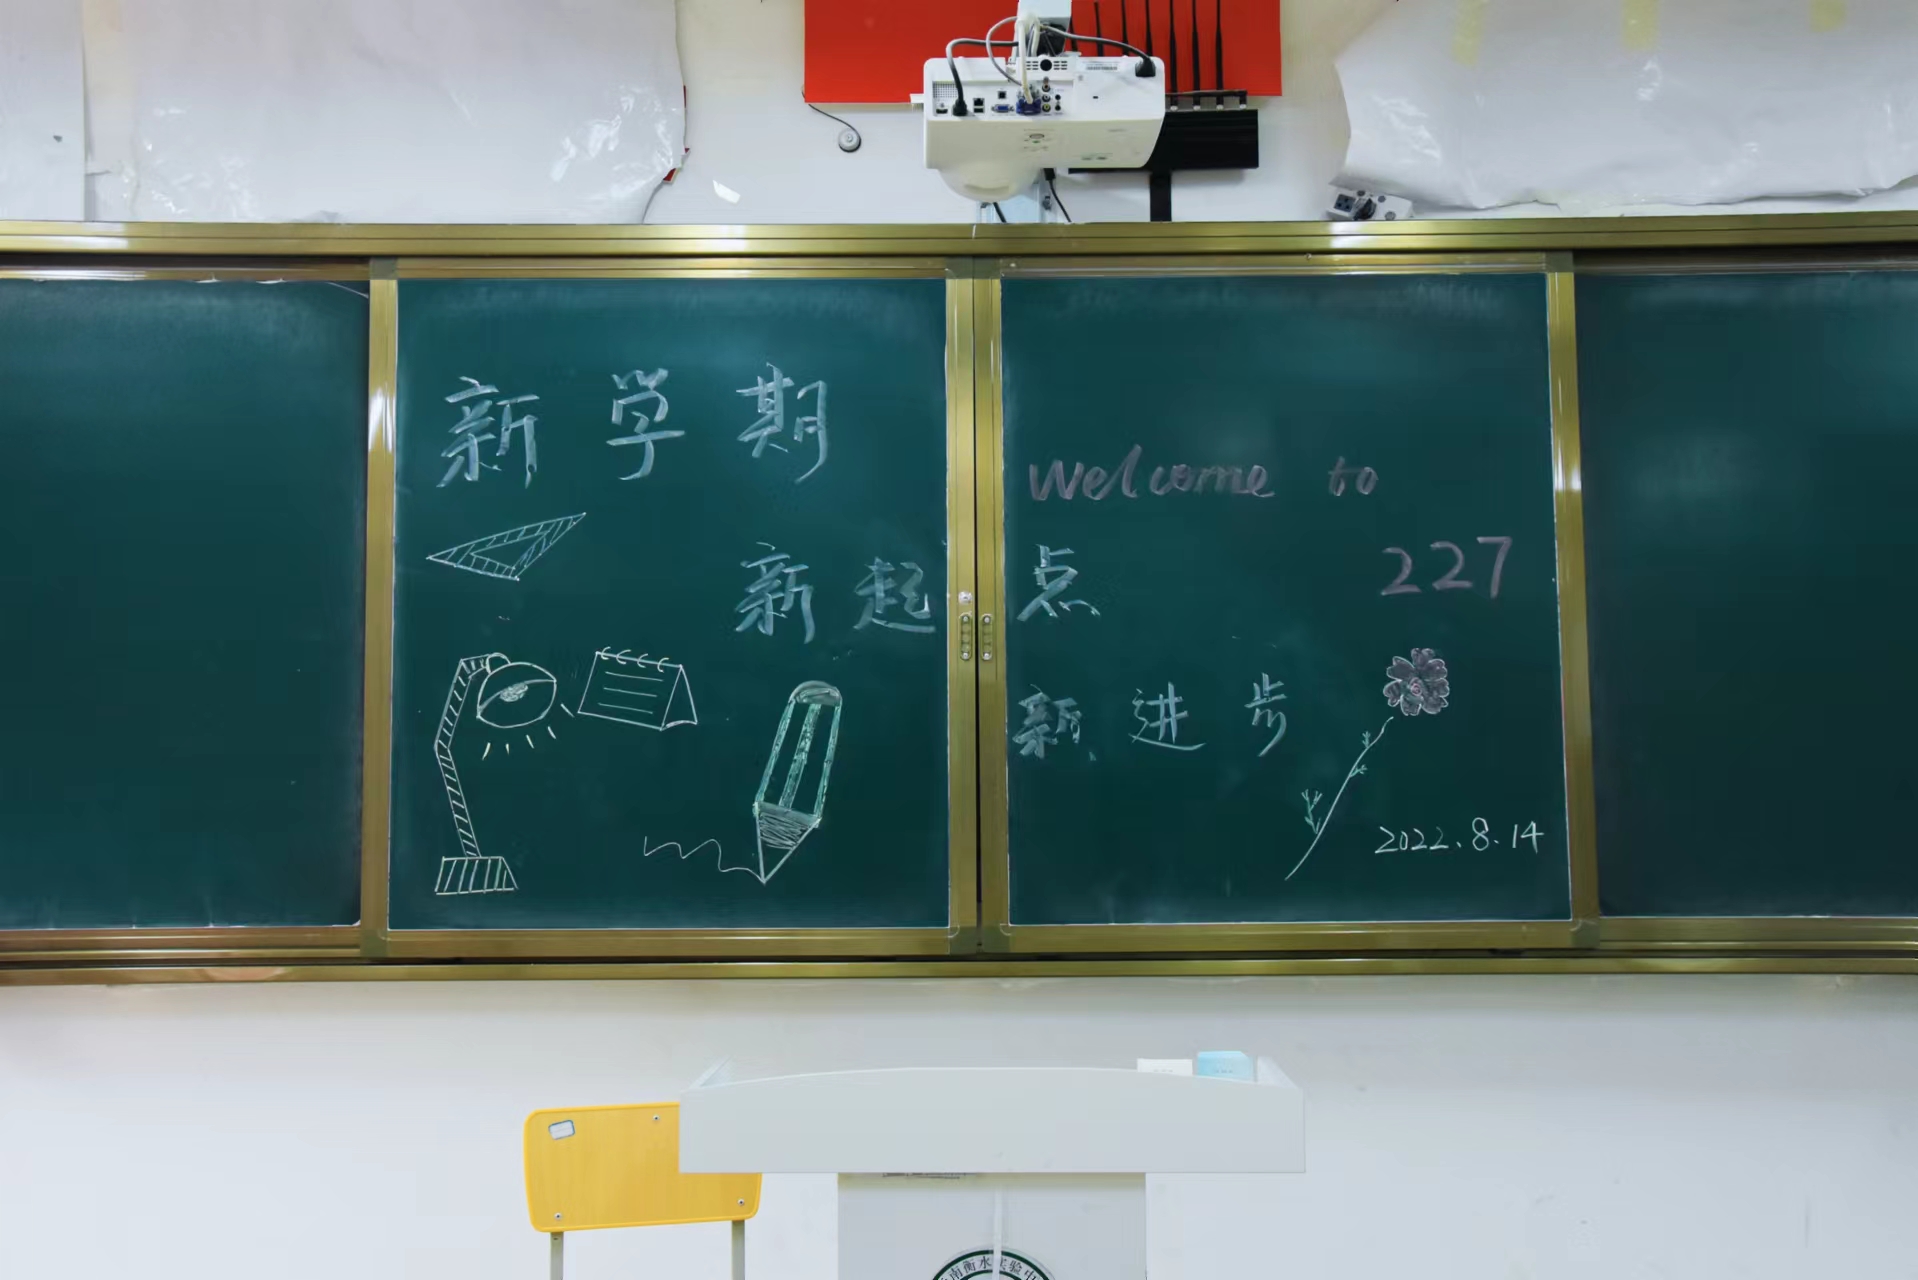 新学期
Welcome to
227
新起点
新进步
2022.8.14
南衡水实验中